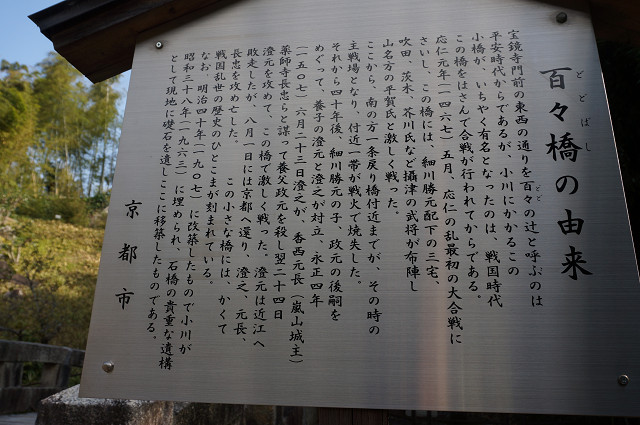 百々橋の由来
どどばし
宝鏡寺門前の東西の通りを百々の辻と呼ぶのは
どど
平安時代からであるが、小川にかかるこの
小橋が、いちやく有名となったのは、戦国時代
この橋をはさんで合戦が行われてからである。
応仁元年(一四六七)五月、応仁の乱最初の大合戦に
さいし、この橋には、細川勝元配下の三宅、
吹田、茨木、芥川氏など摂津の武将が布陣し
山名方の平賀氏と激しく戦った。
ここから、南の方一条戻り橋付近までが、その時の
主戦場となり、付近一帯が戦火で焼失した。
それから四十年後、細川勝元の子、政元の後嗣を
めぐって、養子の澄元と澄之が対立、永正四年
(一五〇七)六月二十三日澄之が、香西元長(嵐山城主)
薬師寺長忠らと謀って養父政元を殺し翌二十四日
澄元を攻めて、この橋で激しく戦った。澄元は近江へ
敗走したが、八月一日には京都へ還り、澄之、元長、
長忠を攻めた。この小さな橋には、かくて
戦国乱世の歴史のひとこまが刻まれている。
なお、明治四十年(一九〇七)に改築したもので小川が
昭和三十八年(一九六三)に埋められ、石橋の貴重な遺構
として現地に礎石を遺しここに移築したものである。
京都市